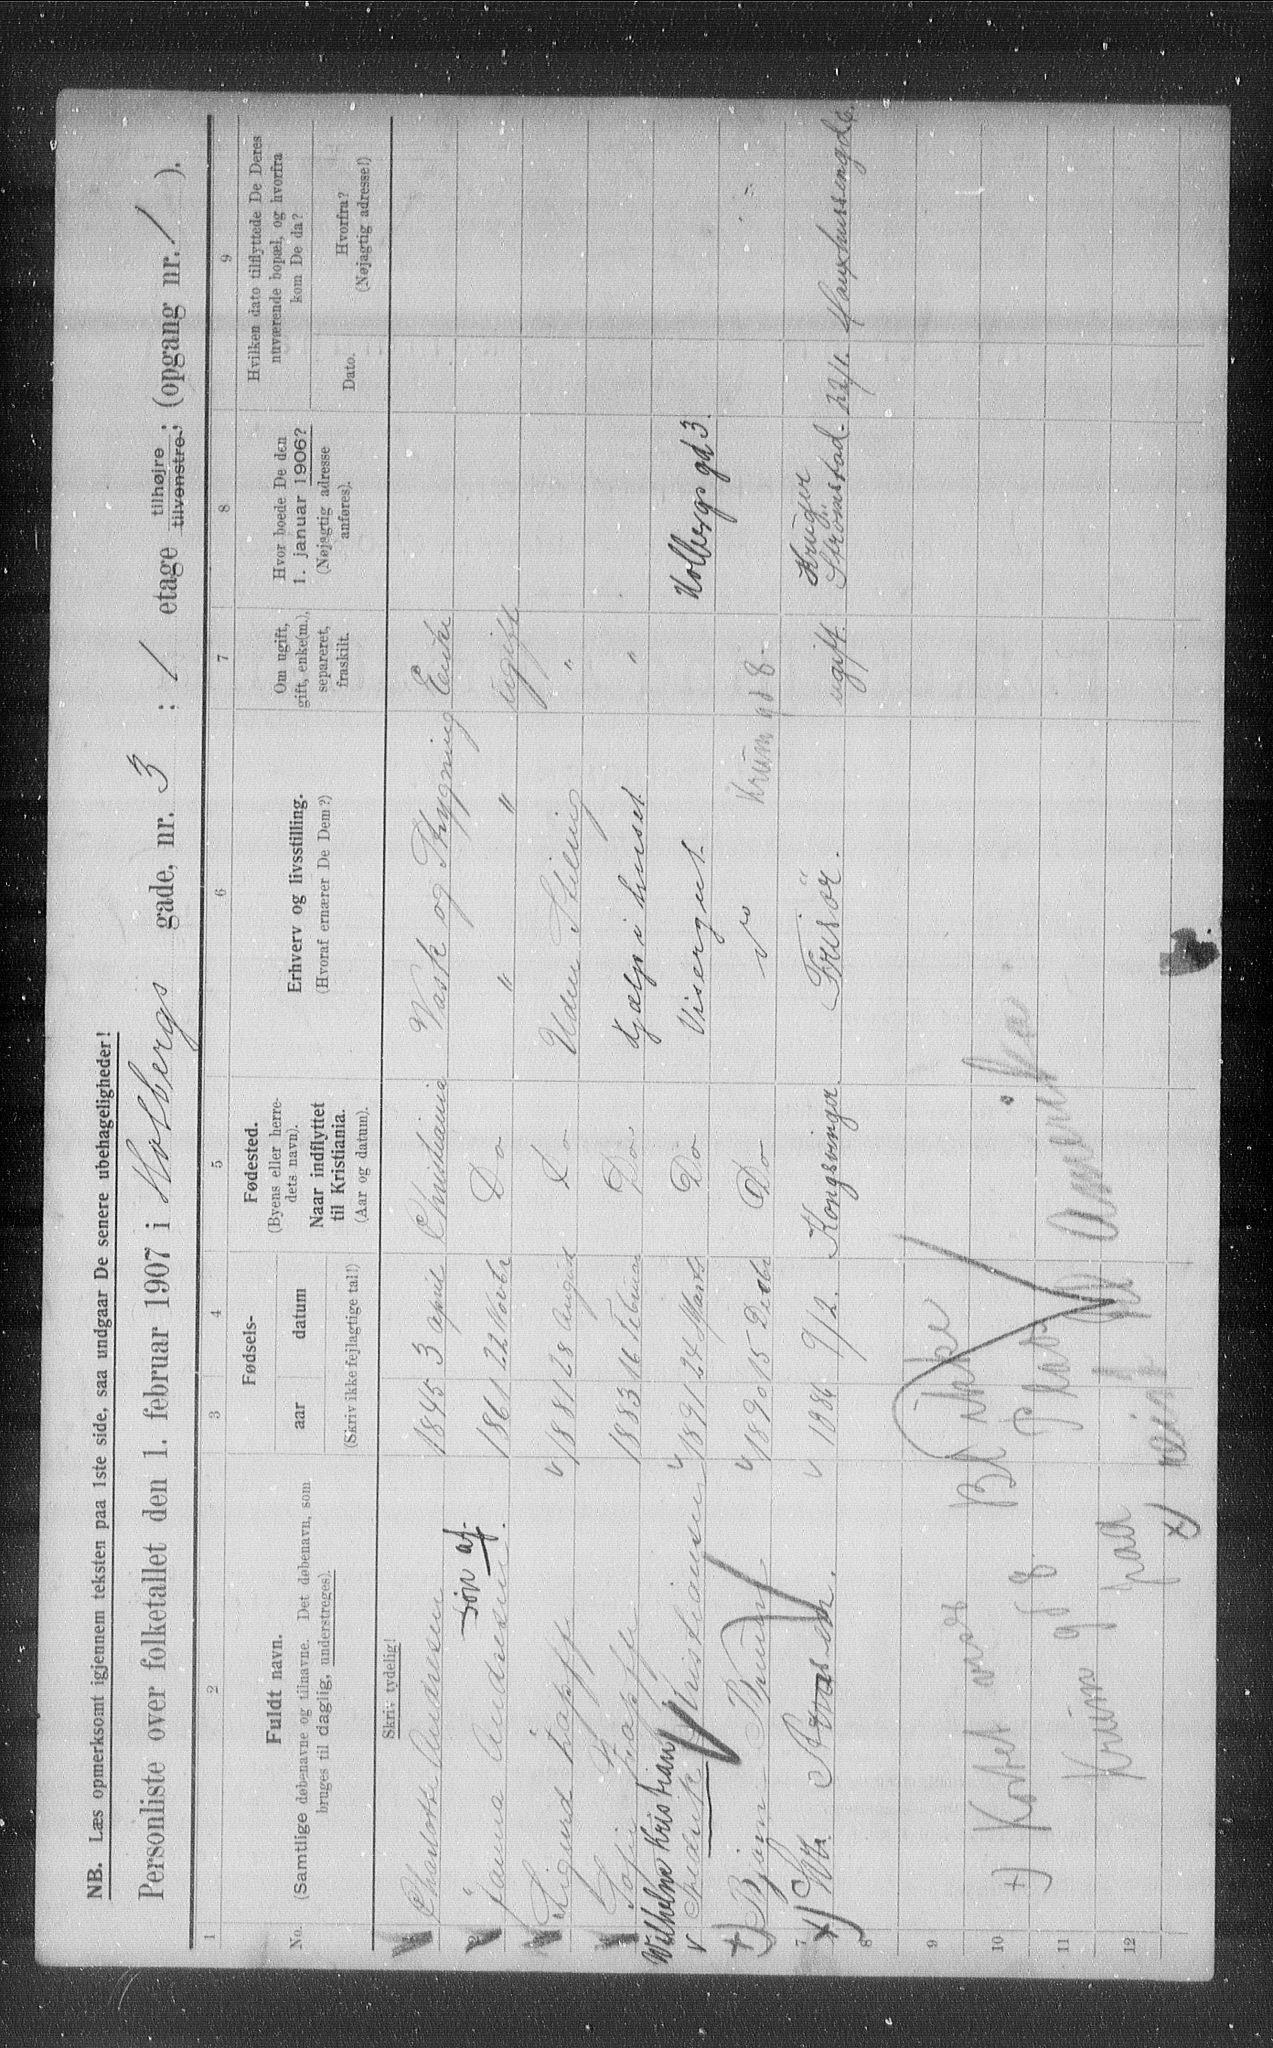 NB. Læs opmerksomt igjennem teksten paa 1ste side, saa undgaar De senere ubehageligheder!
Personliste over folketallet den 1. februar 1907 i Holbergs gade, nr. 3 ; 1 etage tilhøjre tilvenstre, ; (opgang nr. 1 ).
1 2 3 4 5 6 7 8 9
No.
Fuldt navn.
(Samtlige døbenavne og tilnavne. Det døbenavn, som
bruges til daglig, understreges).
Fødsels-
aar datum
(Skriv ikke fejlagtige tal!)
Fødested.
(Byens eller herre-
dets navn).
Naar indflyttet
til Kristiania.
(Aar og datum).
Erhverv og livsstilling.
(Hvoraf ernærer De Dem?)
Om ugift,
gift, enke(m.),
separeret,
fraskilt.
Hvor boede De den
1. januar 1906?
(Nøjagtig adresse
anføres).
Hvilken dato tilflyttede De Deres
nuværende bopæl, og hvorfra
kom De da?
Dato.
Hvorfra?
(Nøjagtig adresse!)
Skriv tydelig!
Charlotte Andresen 1845 3 april Christiania Vask og Strygning Enke
Janna Andresen. 1861 22 Novbr Do " " ugift
søn af.
Sigurd Trapff 1881 28 August Do Uden Stilling "
Sofie 1883 16 Februar Do Hjælp i huset "
Wilhelm Kristian
Fredrik Kristiansen 1891 24 Marts Do Visergut. Holbergs gd 3.
+) Bjarne 1890 15 Decbr Do Do Krum gd 8 -
7 +) 1886 9/2. Kongsvinger. Frisör. ugift. Strömstad. 22/1.
8
9
10
11
12
+) Kostet
Krum gd 8.
+) reist til Amerika.